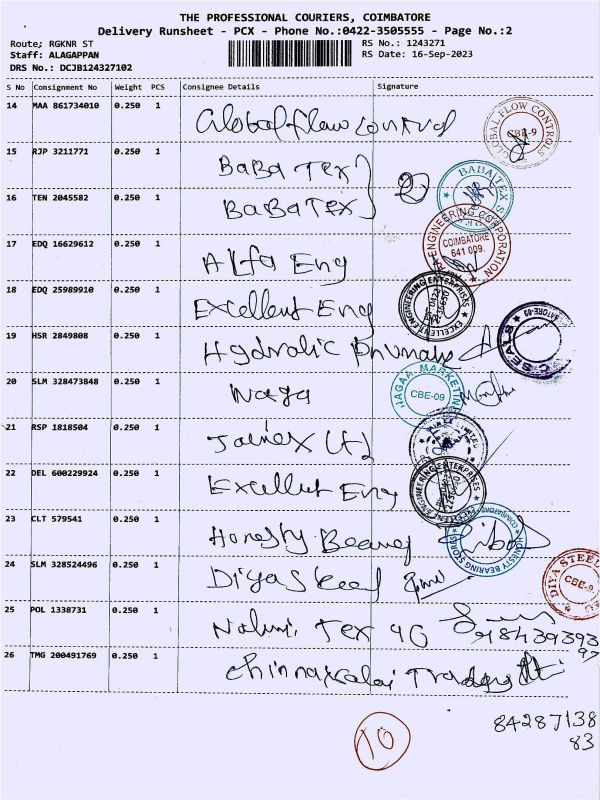 THE PROFESSIONAL COURIERS, COIMBATORE
Delivery Runsheet - PCX - Phone No.:0422-3505555 - Page No.:2
Route; RGKNR ST
RS No.: 1243271
Staff: ALAGAPPAN
RS Date: 16-Sep-2023
DRS No.: DCJB124327102
S No Consignment No Weight PCS Consignee Details Signature
14 MAA 861734010 0.250 1 Global flow control
GLOBAL FLOW CONTROLS CBE-9
15 RJP 3211771 0.250 1 BaBa Tex
BABATEX
16 TEN 2045582 0.250 1 BaBa TEX
2
17 EDQ 16629612 0.250 1 Alfa Eng
ENGINEERING CORPORATION COIMBATORE 641 009.
18 EDQ 25989910 0.250 1 Excellent Eng
EXCELLENT ENGINEERING ENTERPRISES
19 HSR 2849808 0.250 1 Hydrolic
20 SLM 328473848 0.250 1 Naga
NAGAA MARKETING CBE-09
21 RSP 1818504 0.250 1 Jainex Ltd
22 DEL 600229924 0.250 1 Excellent Eng
EXCELLENT ENGINEERING ENTERPRISES
23 CLT 579541 0.250 1 Honesty Bearing
HONESTY BEARING STORES
24 SLM 328524496 0.250 1 Diya Steel
DIYA STEEL CBE-9.
25 POL 1338731 0.250 1 Tex
9843939397
26 TMG 200491769 0.250 1 Chinnaxalai Trading
84287138
83
10